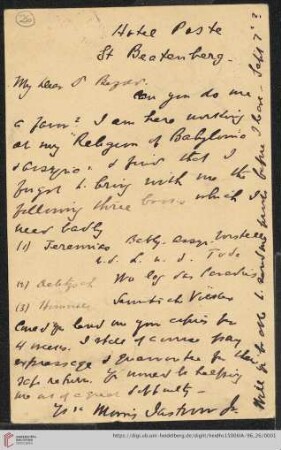 Hotel Poste
St Beatenberg.
My dear Dr Bezold.
Can you do me
a favor? I am here working
at my "Religion of Babylonia
& Assyria" & find that I
forgot to bring with me the
following three books which I
need badly
(1) Jeremias Babyl. Assyr. Vorstell
v. d. L. n. d. Tode
(2) Delitzsch Wo lag das Paradies
(3) Hommel Semitisch Völker
Could you lend me your copies for
4 weeks. I shall of course pay
expressage & guarantee for their
safe return. You would be helping
me out of a great difficulty
Yrs Morris Jastrow Jr.
Will you be able to before I leave Sept 7th?
https://digi.ub.uni-heidelberg.de/diglit/heidhs1500IIA-96_26/0001